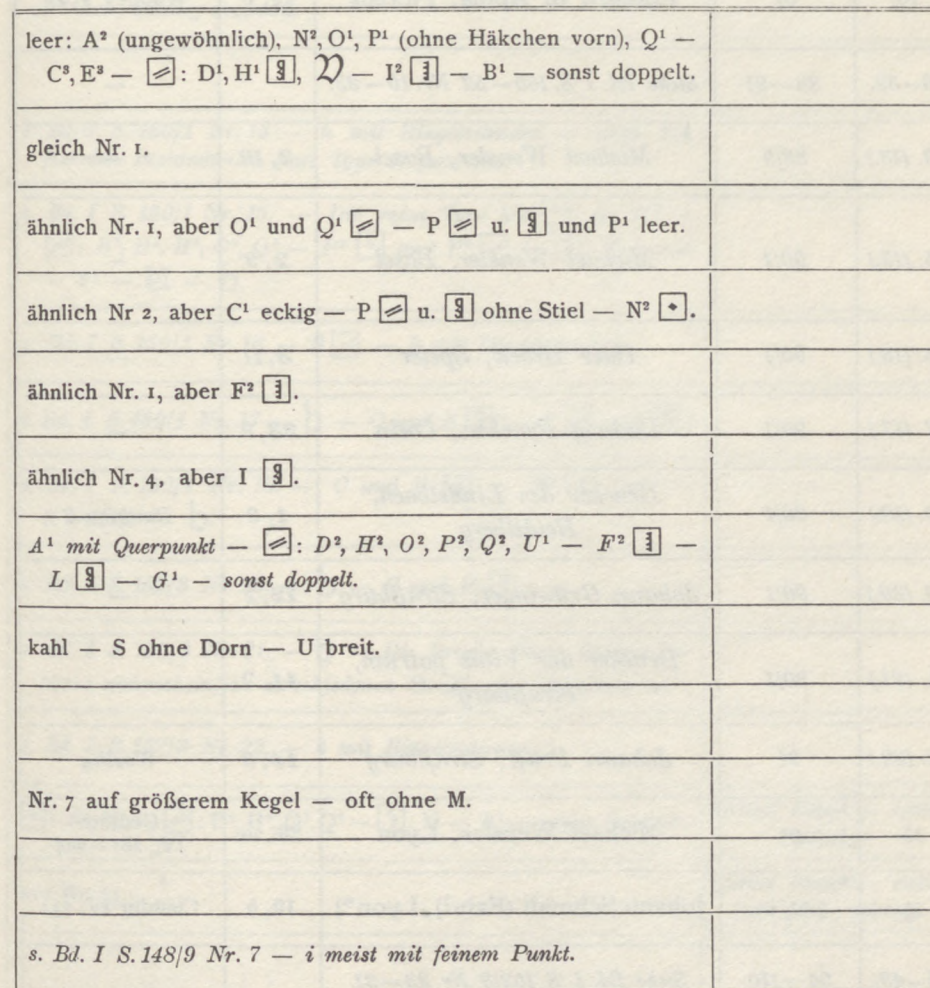 leer: A² (ungewöhnlich), N², O¹, P¹ (ohne Häkchen vorn), Q¹ —
C³, E³ — : D¹, H¹ , 𝔙 — I² — B¹ — sonst doppelt.
gleich Nr. 1.
ähnlich Nr. 1, aber O¹ und Q¹ — P u. und P¹ leer.
ähnlich Nr 2, aber C¹ eckig — P u. ohne Stiel — N² .
ähnlich Nr. 1, aber F² .
ähnlich Nr. 4, aber I .
A¹ mit Querpunkt — : D², H², O², P², Q², U¹ — F² —
L — G¹ — sonst doppelt.
kahl — S ohne Dorn — U breit.
Nr. 7 auf größerem Kegel — oft ohne M.
s. Bd. I S. 148/9 Nr. 7 — i meist mit feinem Punkt.